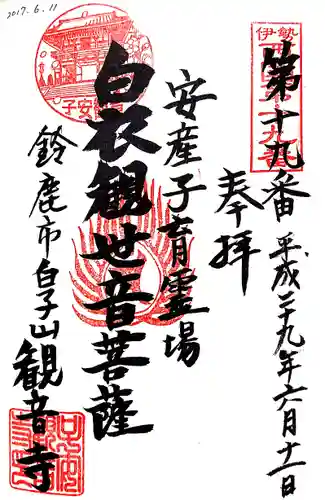 2017.6.11
第十九番
平成二十九年六月十一日
奉拝
安産子育霊場
白衣観世音菩薩
鈴鹿市白子山
観音寺